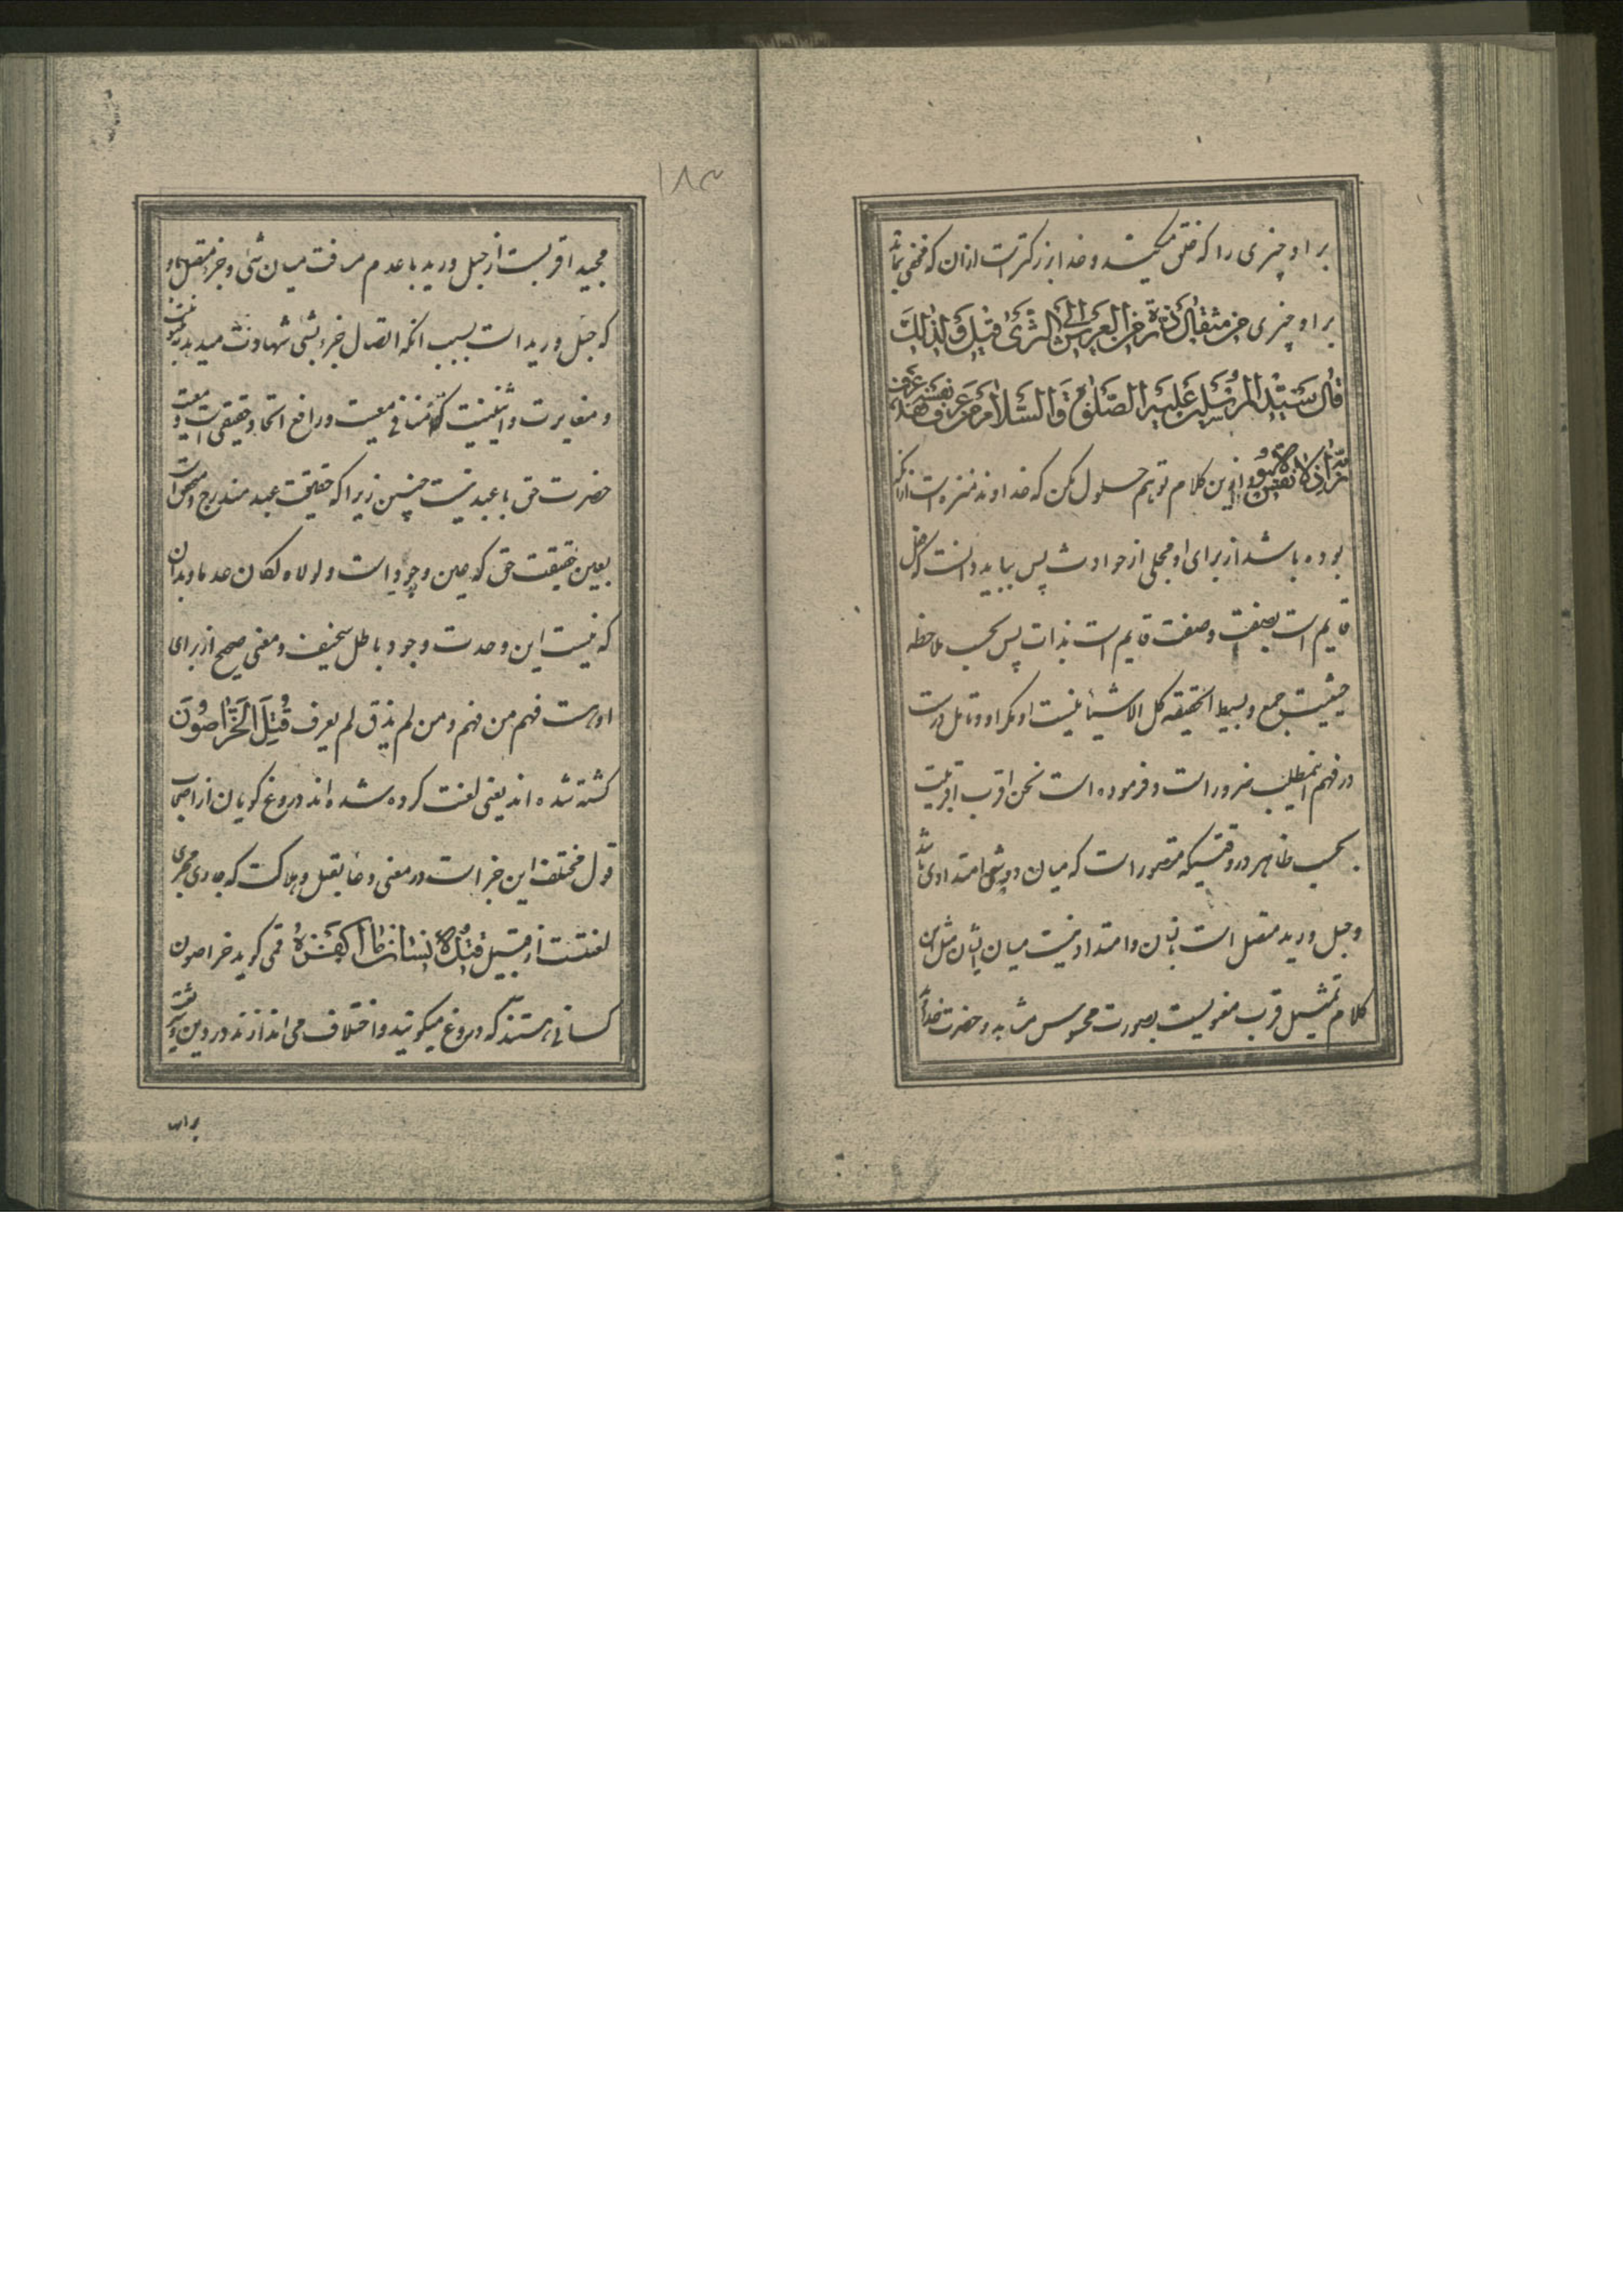 بر او چیزی را که خلق میکنند و خدا بزرکتر است از ان که مخفی بماند
بر او چیزی من مثقال ذرة من العرش الی الثری قیل و لذلك
قال سید المرسلین علیه الصلوة والسلام من عرف نفسه عرف
از این کلام توهم حلول مکن که خداوند منزه است از انکه
بوده باشد از برای او محلی از حوادث پس بباید دانست که فعل
قایم است بصفت و صفت قایم است بذات پس بحسب ملاحظه
حیثیت جمع و بسیط الحقیقه کل الاشیا نیست او مکر او و تامل درست
در فهم اینمطلب ضرور است و فرموده است نحن اقرب اقربیت
بحسب ظاهر در وقتیکه متصور است که میان دو شی امتدادی باشد
و حبل ورید متصل است بانسان و امتداد نیست میان ایشان مثل این
کلام تمثیل قرب معنویست بصورت محسوس مشابه و حضرت خداوند
۱۸۳
مجید اقربست از حبل ورید با عدم مسافت میان شی و جزء متصل باو
که حبل ورید است بسبب انکه اتصال جزء بشی شهادت میدهد به بینونت
و مغایرت و اثنینیت که منافی معیت و رافع اتحاد حقیقی است و معیت
حضرت حق با عبد نیست چنین زیرا که حقیقت عبد مندرج و مضمحل است
بعین حقیقت حق که عین وجود است و لولاه لکان عدما و بدان
که نیست این وحدت وجود باطل سخیف و معنی صحیح از برای
او هست فهم من فهم و من لم یذق لم یعرف قُتِلَ الخَرّاصُونَ
کشته شده اند یعنی لعنت کرده شده اند دروغ کویان از اصحاب
قول مختلف این خبر است در معنی دعا بقتل و هلاکت که جاری مجری
لعنتست از قبیل قتل الانسان ما اکفره قمی کوید خراصون
کسانی هستند که دروغ میکویند و اختلاف می اندازند در دین
برای